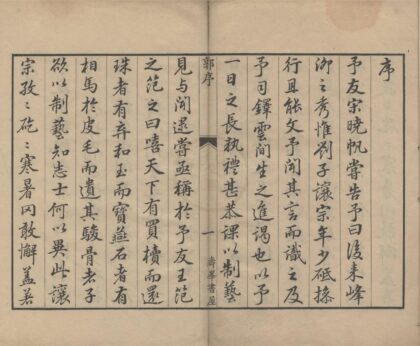 序
予友宗曉帆嘗告予曰後來峰
泖之秀惟劉子讓宗年少砥操
行且能文予聞其言而識之及
予司鐸雲間生之進謁也以予
一日之長執禮甚恭課以制藝
郭序
一
壽峯書屋
見与聞遝嘗亟稱於予友王范
之范之曰嘻天下有買櫝而還
珠者有弃和玉而寶燕石者有
相馬於皮毛而遺其駿骨者子
欲以制藝知志士何以異此讓
宗孜〻矻〻寒暑罔敢懈蓋若